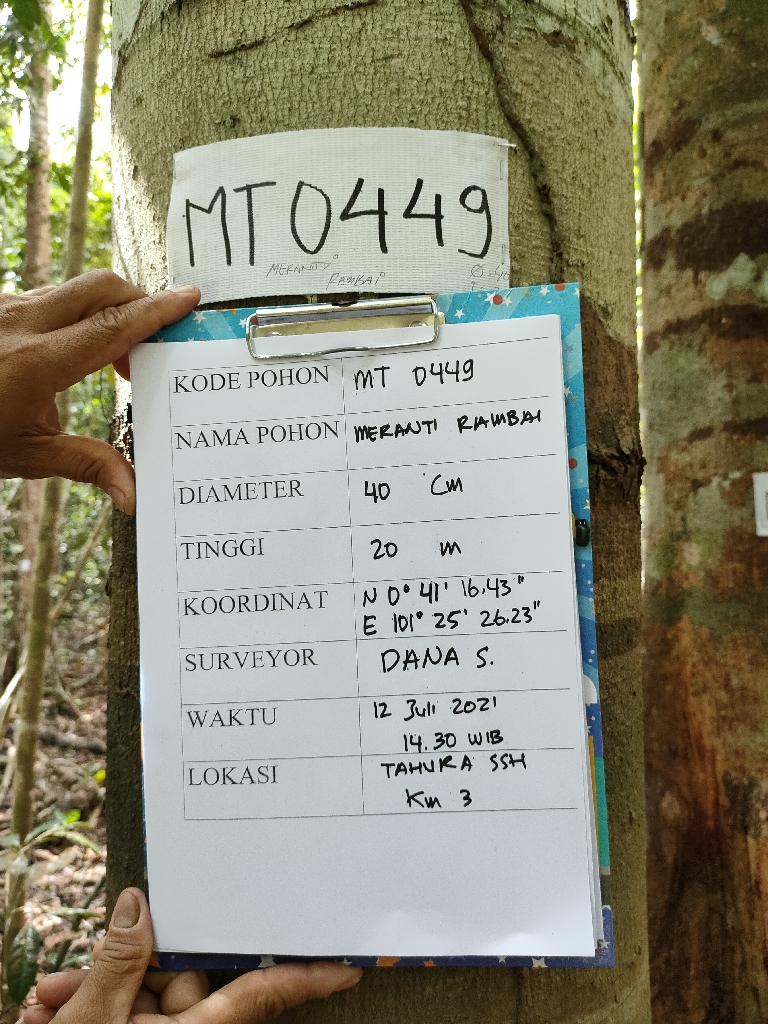 MT0449
MERANTI
RAMBAI
KODE POHON MT 0449
NAMA POHON MERANTI RAMBAI
DIAMETER 40 Cm
TINGGI 20 m
KOORDINAT N 0° 41' 16.43"
E 101° 25' 26.23"
SURVEYOR DANA S.
WAKTU 12 Juli 2021
14.30 WIB
LOKASI TAHURA SSH
Km 3